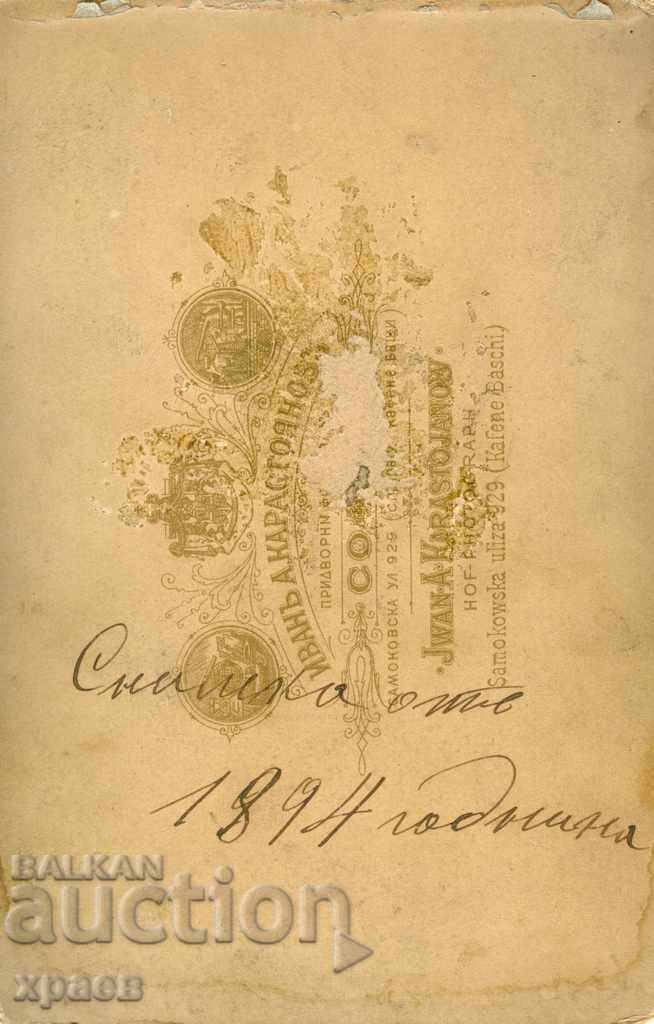 ИВАНЪ А. КАРАСТОЯНОВЪ
ПРИДВОРНИ
СО
САМОКОВСКА УЛ 929 Кафене Башчи)
JWAN A. KARASTOJANOW
HOF-PHOTOGRAPH
Samokowska uliza 929 (Kafene Baschi)
Снимка отъ
1894 година
BALKAN
auction
храев